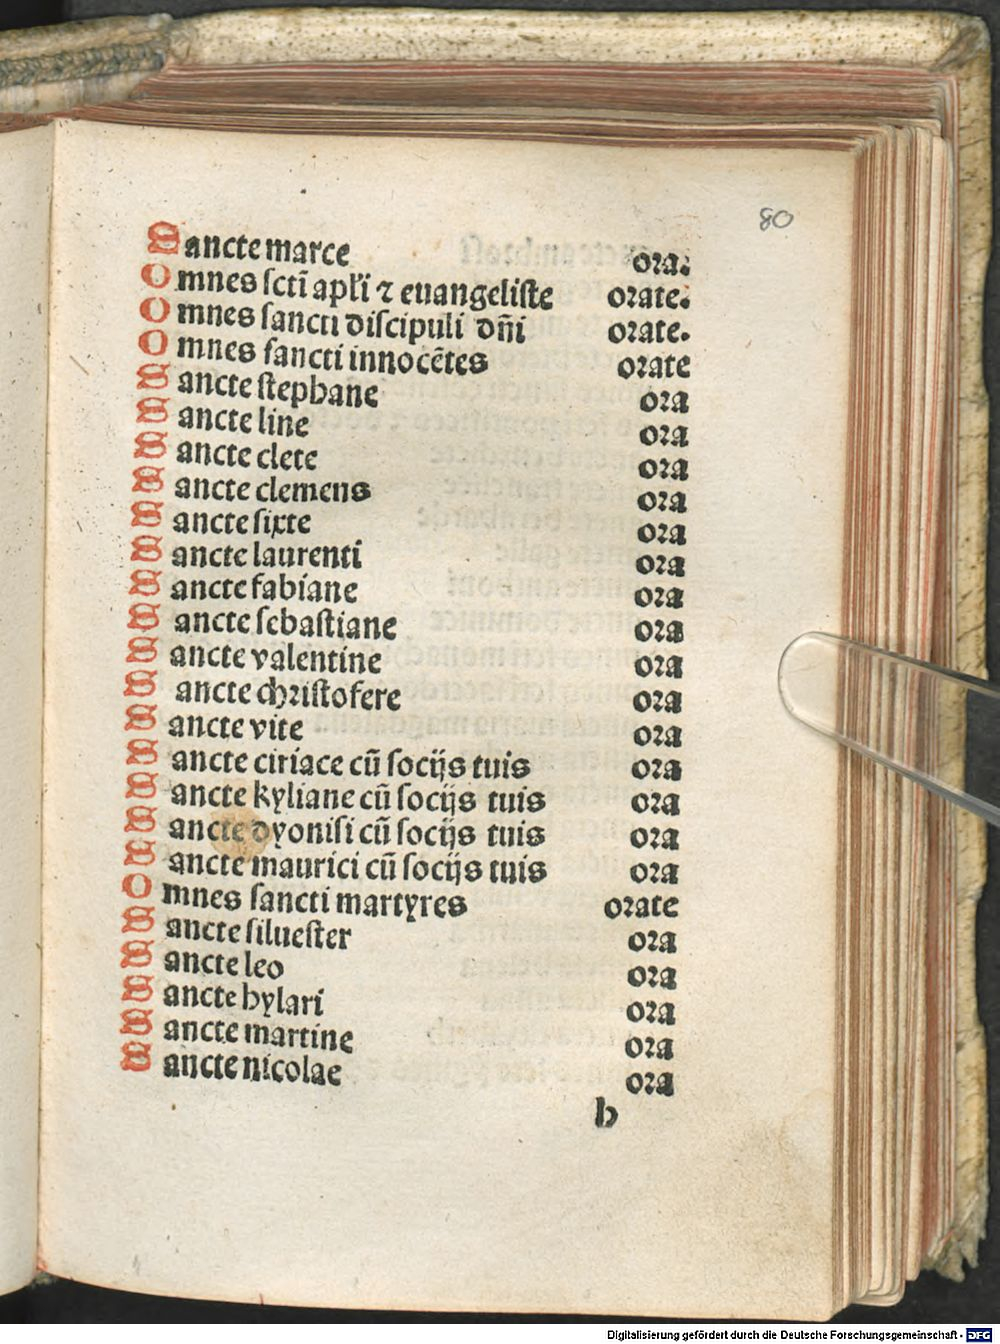 80
Sancte marce ora.
Omnes sctī apl'i ⁊ euangeliste orate.
Omnes sancti discipuli dn̄i orate.
Omnes sancti innocētes orate
Sancte stephane ora
Sancte line ora
Sancte clete ora
Sancte clemens ora
Sancte sixte ora
Sancte laurenti ora
Sancte fabiane ora
Sancte sebastiane ora
Sancte valentine ora
Sancte christofere ora
Sancte vite ora
Sancte ciriace cū socijs tuis ora
Sancte kyliane cū socijs tuis ora
Sancte dyonisi cū socijs tuis ora
Sancte maurici cū socijs tuis ora
Omnes sancti martyres orate
Sancte siluester ora
Sancte leo ora
Sancte hylari ora
Sancte martine ora
Sancte nicolae ora
b
Digitalisierung gefördert durch die Deutsche Forschungsgemeinschaft - DFG